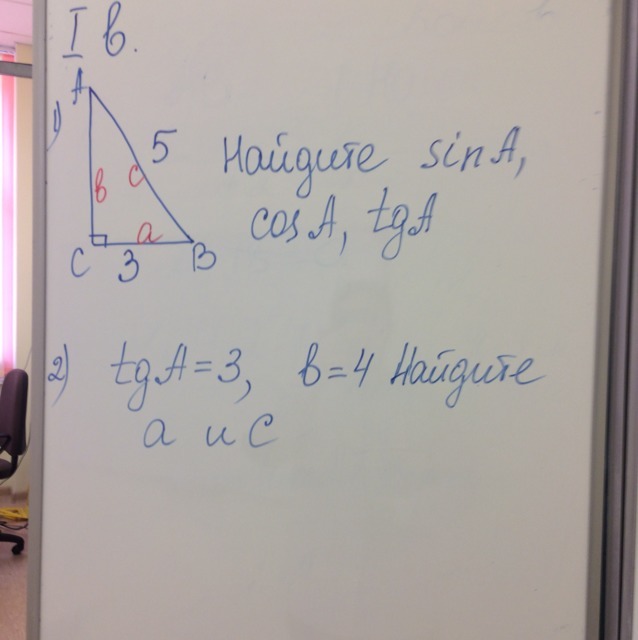 I в.
1)
A
5
в
c
a
C
3
B
Найдите sinA,
cosA, tgA
2) tgA=3, в=4 Найдите
a и c